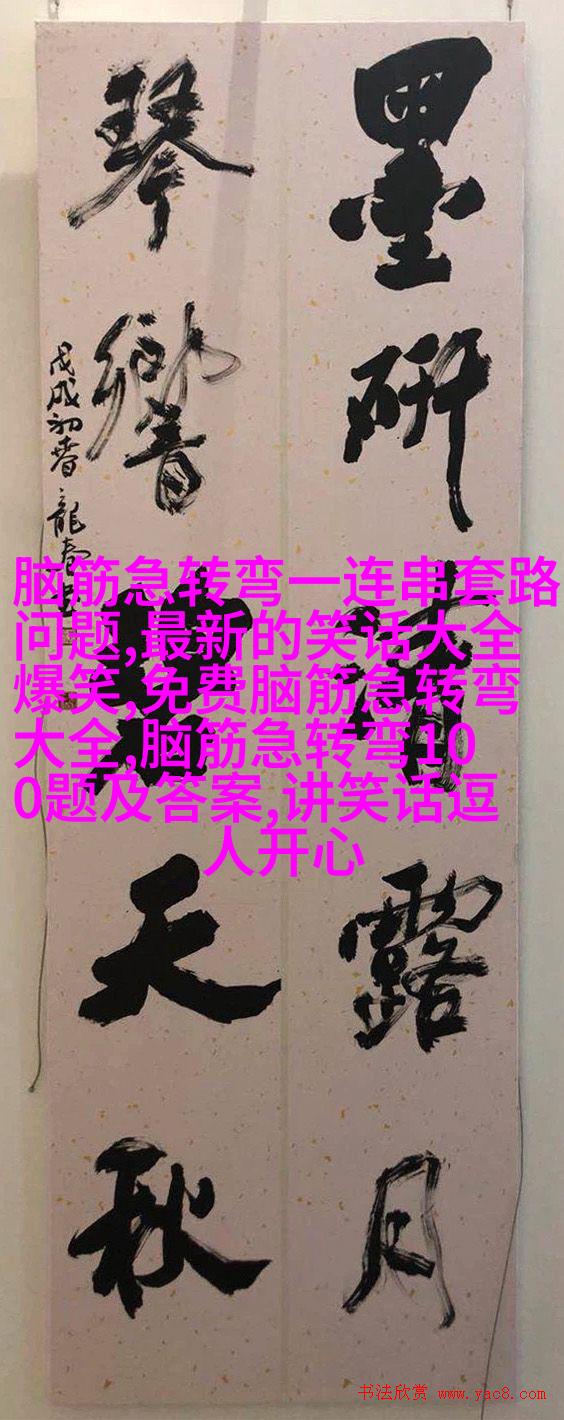 墨研清露月
琴響碧天秋
戊戌初春龍春
脑筋急转弯一连串套路
问题,最新的笑话大全
爆笑,免费脑筋急转弯
大全,脑筋急转弯10
0题及答案,讲笑话逗
人开心
书法欣赏 www.yac8.com